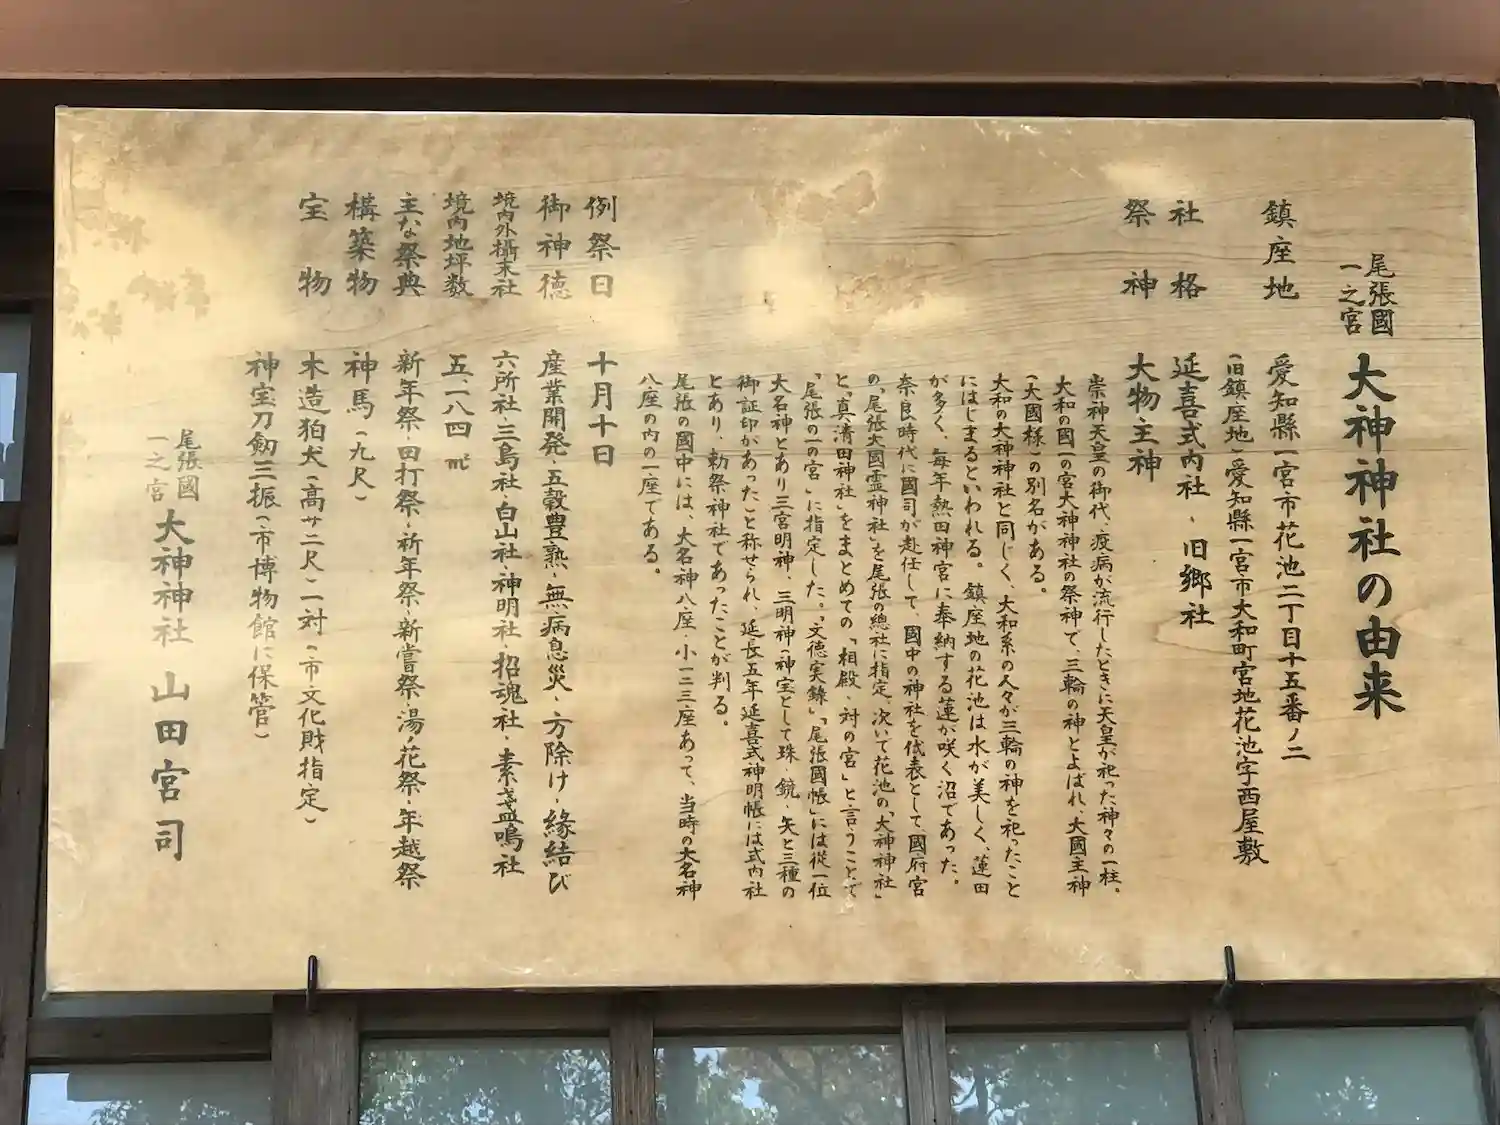 尾張國
一之宮
大神神社の由来
鎮座地 愛知縣一宮市花池二丁目十五番ノ二
(旧鎮座地)愛知縣一宮市大和町宮地花池字西屋敷
社格 延喜式内社・旧郷社
祭神 大物主神
崇神天皇の御代、疫病が流行したときに天皇が祀った神々の一柱。
大和の國一の宮大神神社の祭神で、三輪の神とよばれ、大國主神
(大國様)の別名がある。
大和の大神神社と同じく、大和系の人々が三輪の神を祀ったこと
にはじまるといわれる。鎮座地の花池は水が美しく、蓮田
が多く、毎年熱田神宮に奉納する蓮が咲く沼であった。
奈良時代に國司が赴任して、國中の神社を代表として、國府宮
の「尾張大國霊神社」を尾張の總社に指定、次いで花池の「大神神社」
と「真清田神社」をまとめての「相殿・対の宮」と言うことで
「尾張の一の宮」に指定した。「文徳実録」「尾張國帳」には従一位
大名神とあり三宮明神、三明神(神宝として珠・鏡・矢と三種の
御証印があった)と称せられ、延長五年延喜式神明帳には式内社
とあり、勅祭神社であったことが判る。
尾張の國中には、大名神八座・小一二三座あって、当時の大名神
八座の内の一座である。
例祭日 十月十日
御神徳 産業開発・五穀豊熟・無病息災・方除け・縁結び
境内外攝末社 六所社・三島社・白山社・神明社・招魂社・素盞鳴社
境内地坪数 五、一八四㎡
主な祭典 新年祭・田打祭・祈年祭・新嘗祭・湯ノ花祭・年越祭
構築物 神馬(九尺)
宝物 木造狛犬(高サ二尺)一対(市文化財指定)
神宝刀劔三振(市博物館に保管)
尾張國
一之宮
大神神社 山田宮司